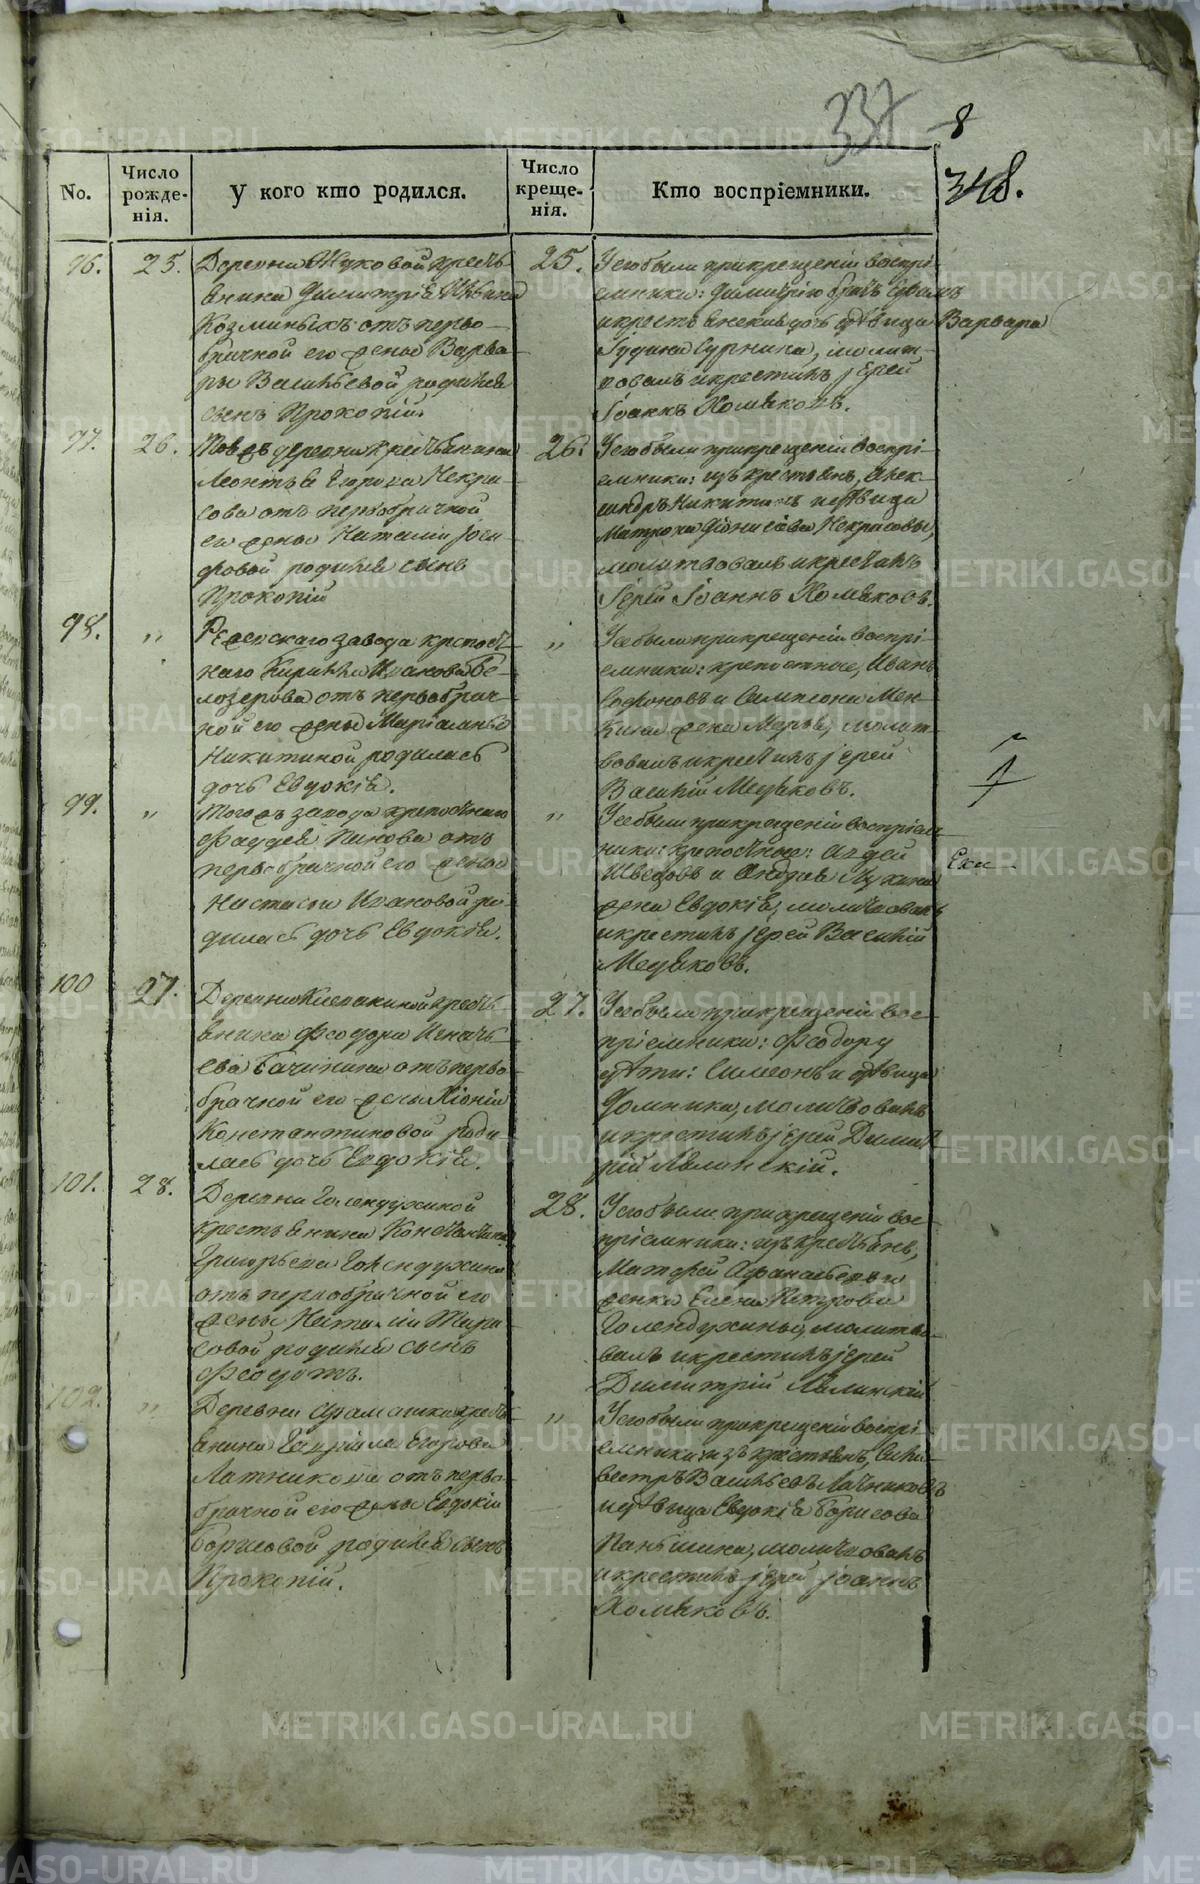 337
8
348.
No.
Число рожде-нія.
У кого кто родился.
Число креще-нія.
Кто воспріемники.
96.
25.
Деревни Жуковой кресть-
янина Димитрія
Козминыхъ отъ перво-
брачной его жены Варва-
ры Васильевой родился
сынъ Прокопій.
25.
У его были при крещеніи воспрі-
емники: Димитрію братъ
и крестьянской дочь дѣвица Варвара
молит-
вовалъ и крестилъ іерей
Іоаннъ Хомяковъ.
97.
26.
Той же деревни крестьянина
Леонтья Егорова Некра-
сова отъ первобрачной
его жены Наталіи
родился сынъ
Прокопій
26.
У его были при крещеніи воспрі-
емники: изъ крестьянъ, Алек-
сандръ Никитинъ и дѣвица
Матрона Діонисіева Некрасовы,
молитвовалъ и крестилъ
Іерей Іоаннъ Хомяковъ.
98.
"
Режевскаго завода крѣпост-
наго Кирилла Иванова Бе-
лозерова отъ первобрач-
ной его жены Маріамны
Никитиной родилась
дочь Евдокія.
"
У ея были при крещеніи воспрі-
емники: крепостные, Иванъ
Софоновъ и Сампсона Мен-
кина жена Марья, молит-
вовалъ и крестилъ іерей
Василій Медяковъ.
99.
"
Того жъ завода крепостнаго
Фаддея Панова отъ
первобрачной его жены
Настасьи Ивановой ро-
дилась дочь Евдокія.
"
У ея были при крещеніи воспріем-
ники: крепостные: Авдей
Швецовъ и Андрея Лукина
жена Евдокія, молитвовалъ
и крестилъ іерей Василій
Медяковъ.
100
27.
Деревни Клевакиной кресть-
янина Феодора Игнать-
ева Бачинина отъ перво-
брачной его жены Хіоніи
Константиновой роди-
лась дочь Евдокія.
27.
У ея были при крещеніи вос-
пріемники: Феодору
дѣти: Симеонъ и дѣвица
Домника, молитвовалъ
и крестилъ іерей Димит-
рій Лялинскій.
101.
28.
Деревни Голендухиной
крестьянина Константина
Григорьева Голендухина
отъ первобрачной его
жены Наталіи Тара-
совой родился сынъ
Феодотъ.
28.
У его были при крещеніи вос-
пріемники: изъ крестьянъ,
Матфей Афанасьевъ и
женка Елена Петрова
Голендухины, молитво-
валъ и крестилъ іерей
Димитрій Лялинскій
102.
"
Деревни Арамашки кресть-
янина Гавріила Егорова
Латникова отъ перво-
брачной его жены Евдокіи
Борисовой родился сынъ
Прокопій.
"
У его были при крещеніи воспрі-
емники изъ крестьянъ, Силь-
вестръ Васильевъ Латниковъ
и дѣвица Евдокія Борисова
Паньшина, молитвовалъ
и крестилъ іерей Іоаннъ
Хомяковъ.
METRIKI.GASO-URAL.RU